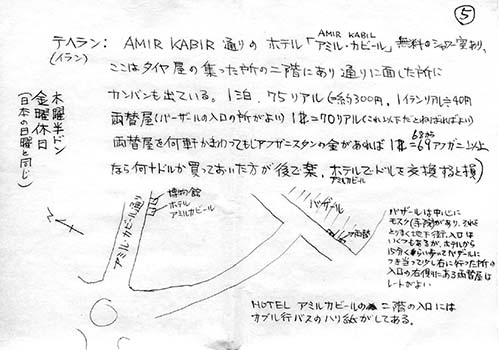 ⑤
テヘラン: AMIR KABIR 通りの ホテル「アミル・カビール」無料のシャワー室あり、
AMIR KABIL
(イラン)
ここはタイヤ屋の集った所の二階にあり通りに面した所に
カンバンも出ている。1泊、75リアル(=約300円, 1イランリアル≒4円
両替屋(バーザールの入口の所がよい) 1$=70リアル(これ以下だとねばればよい)
両替屋を何軒かまわってもしアフガニスタンの金があれば 1$=69アフガニ以上
68から
なら何十ドルか買っておいた方が後で楽、ホテルでドルを交換すると損)
アミルカビール
木曜半ドン
金曜休日
(日本の日曜と同じ)
博物館
ホテル
アミルカビール
アミルカビール通り
バザール
両替
バザールは中心に
モスク(寺院)があり、それを
とりまく地下街、入口は
いくつもあるが、ホテルから
15分くらい歩ってバザールに
つき当って少し右に行った所の
入口の右側にある両替屋は
レートがよい
HOTEL アミルカビールの 二階の入口には
カブル行バスのハリ紙がしてある。